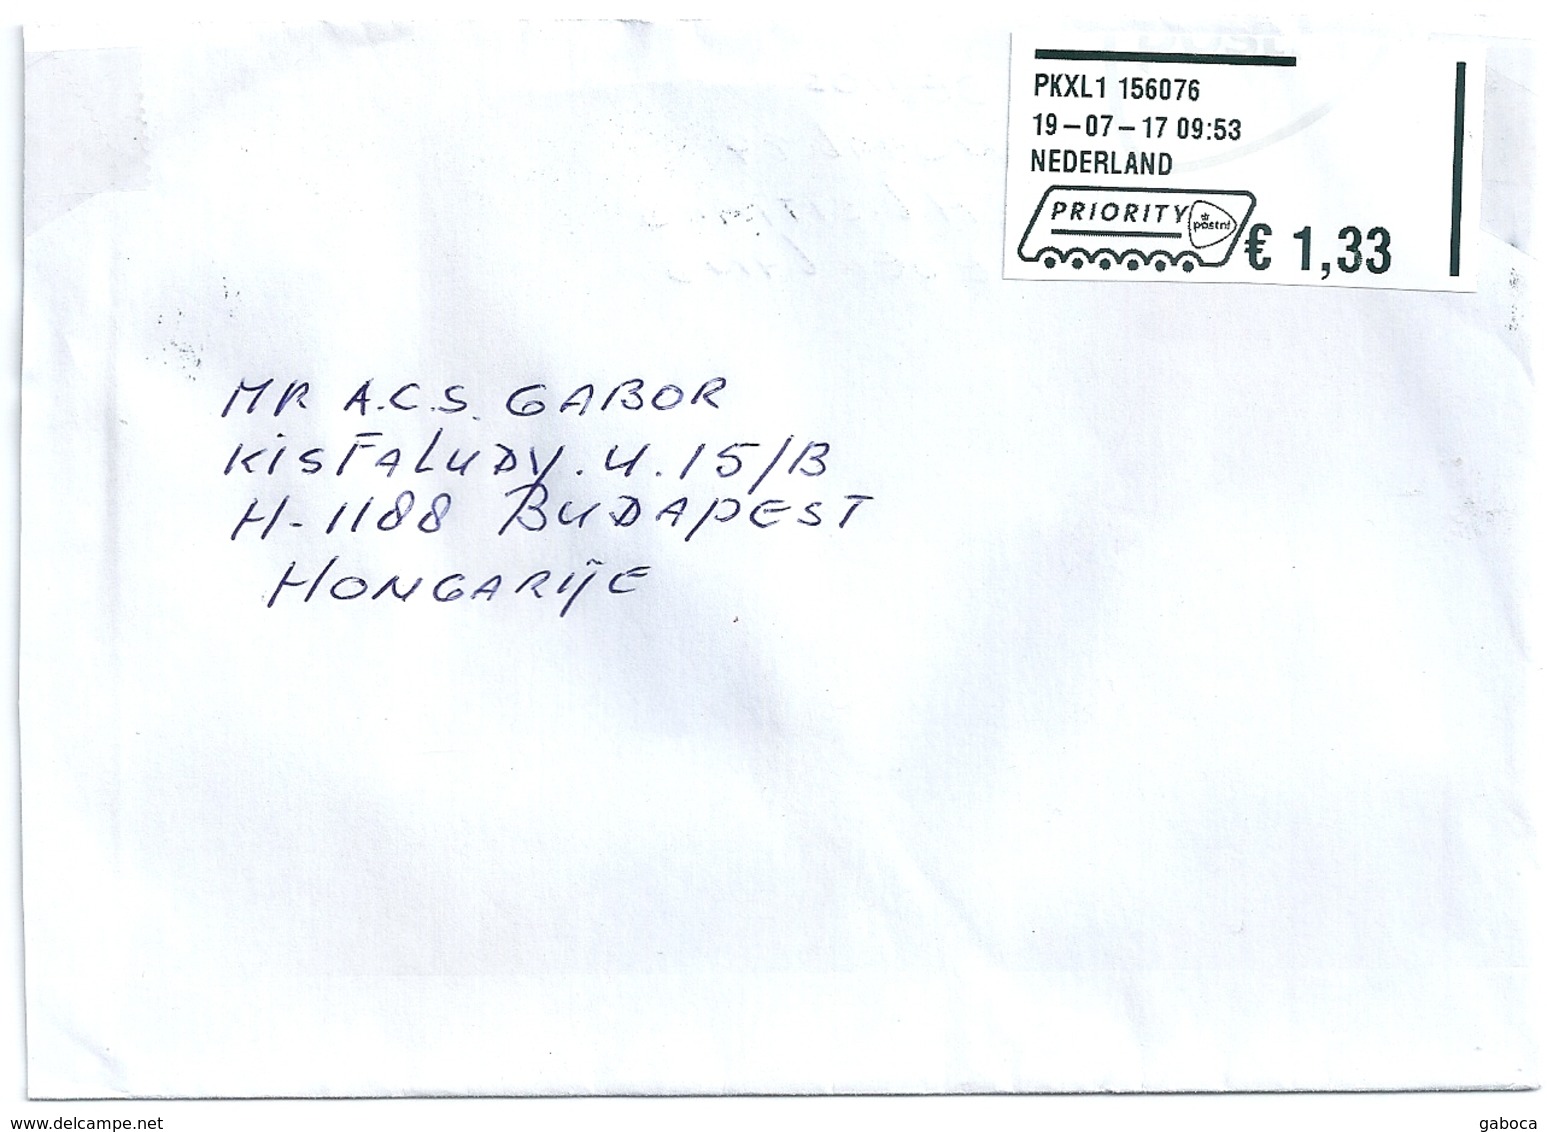 PKXL1 156076
19-07-17 09:53
NEDERLAND
PRIORITY
postnl
€ 1,33
MR A.C.S. GABOR
KISFALUDY. U. 15/B
H-1188 BUDAPEST
HONGARIJE
www.delcampe.net
gaboca